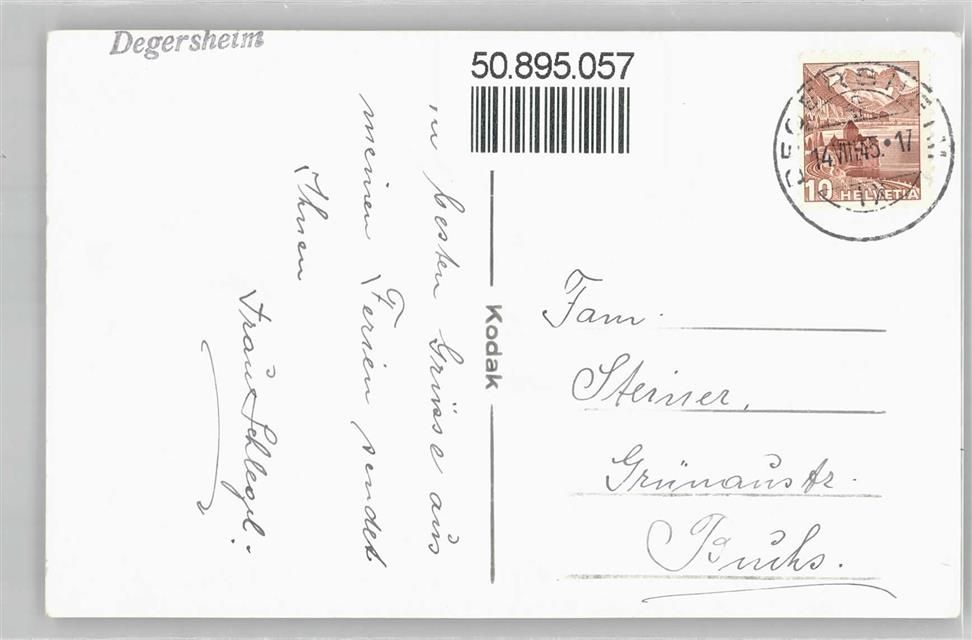 Degersheim
50.895.057
DEGERSHEIM
14.VII.45.·17
10 HELVETIA
besten Grüsse aus
meinen Ferien sendet
Ihnen
Frau Schlegel.
Kodak
Fam.
Steiner,
Grünaustr.
Buchs.